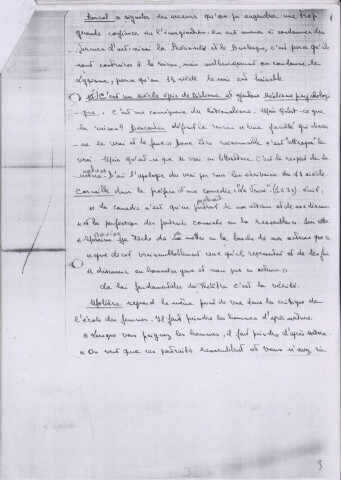 Pascal a signalé des erreurs qu'on peut engendrer une trop
grande confiance en l'imagination. On est amené à condamner des
formes d'art ainsi la Préciosité et le Burlesque, c'est parce qu'ils
sont contraires à la raison, mais malheureusement on condamne le
Lyrisme, parce qu'au 17 siècle le moi est haïssable.
C'est un siècle épris de Réalisme et ajoutons Réalisme psychologi
que. C'est une conséquence du Rationalisme. Mais qu'est-ce que
la raison? Descartes définit la raison « Une faculté qui discer
ne le vrai et le faux » pour être raisonnable c'est "attraper" le
vrai. Mais qu'est-ce que le vrai en littérature c'est le respect de la
nature. l'apologie du vrai par tous les écrivains du 17 siècle
Corneille dans la préface d'une comédie "La Veuve" (1634) écrit,
« La comédie n'est qu'un portrait de nos actions et de nos discours
« et la perfection des portraits consiste en la ressemblance. Sur cette
« Maxime je tâche de ne mettre en la bouche de mes acteurs que ce
« que diraient vraisemblablement ceux qu'ils représentent et de les faire
« discourir en honnêtes gens et non pas en auteurs »
La loi fondamentale du théâtre c'est la vérité.
Molière reprend le même point de vue dans la critique de
l'école des femmes. Il faut peindre les hommes d'après nature
« Lorsque vous peignez les hommes, il faut peindre d'après nature.
« On veut que ces portraits ressemblent et vous n'avez rien
3
3